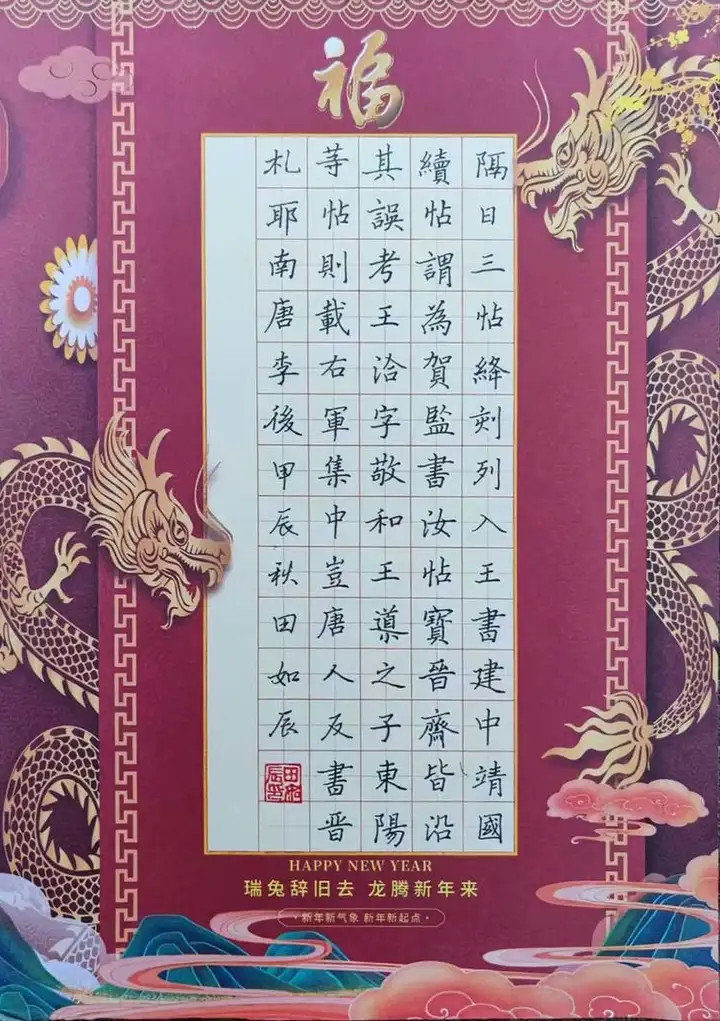 福
隔日三帖絳刻列入王書建中靖國
續帖謂為賀監書汝帖寶晉齋皆沿
其誤考王洽字敬和王導之子東陽
等帖則載右軍集中豈唐人反書晉
札耶南唐李後甲辰秋田如辰
田如辰印
HAPPY NEW YEAR
瑞兔辞旧去 龙腾新年来
·新年新气象 新年新起点·